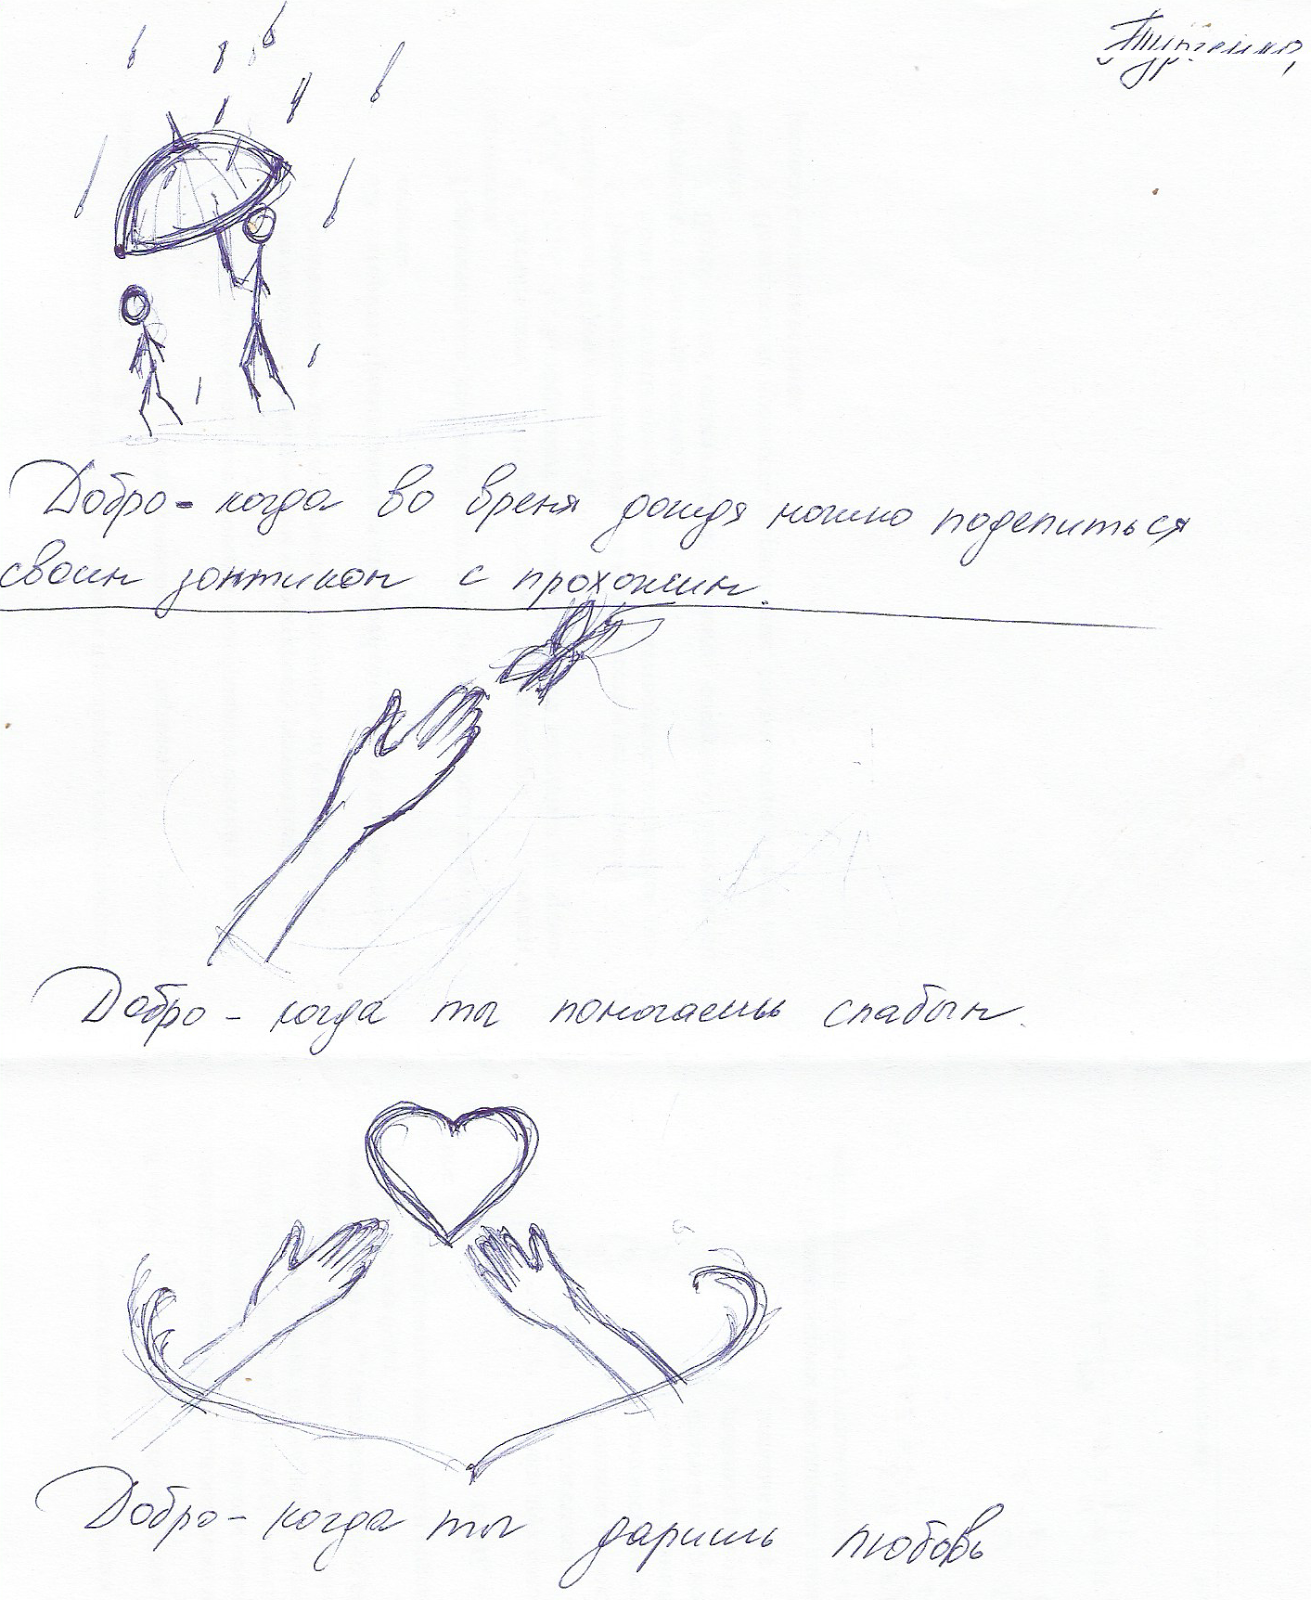 Добро - когда во время дождя можно поделиться
своим зонтиком с прохожим.
Добро - когда ты помогаешь слабым.
Добро - когда ты даришь любовь